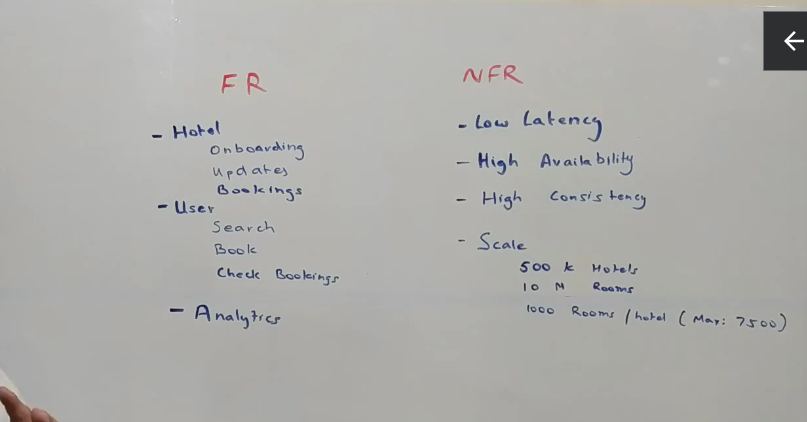 FR
- Hotel
Onboarding
Updates
Bookings
- User
Search
Book
Check Bookings
- Analytics
NFR
- Low Latency
- High Availability
- High Consistency
- Scale
500 k Hotels
10 M Rooms
1000 Rooms / hotel ( Max: 7500 )